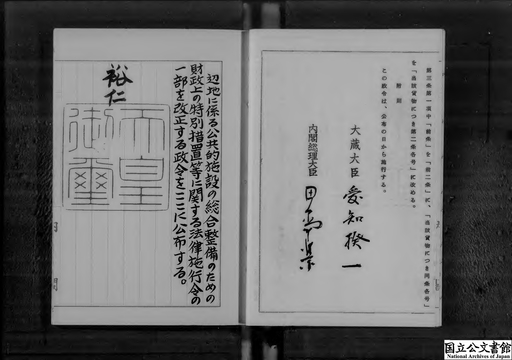 第三条第一項中「前条」を「前二条」に、「当該貨物につき同条各号」
を「当該貨物につき第二条各号」に改める。
附則
この政令は、公布の日から施行する。
大蔵大臣 愛知揆一
内閣総理大臣 田中角榮
辺地に係る公共的施設の総合整備のための
財政上の特別措置等に関する法律施行令の
一部を改正する政令をここに公布する。
裕仁
天皇
御璽
国立公文書館
National Archives of Japan